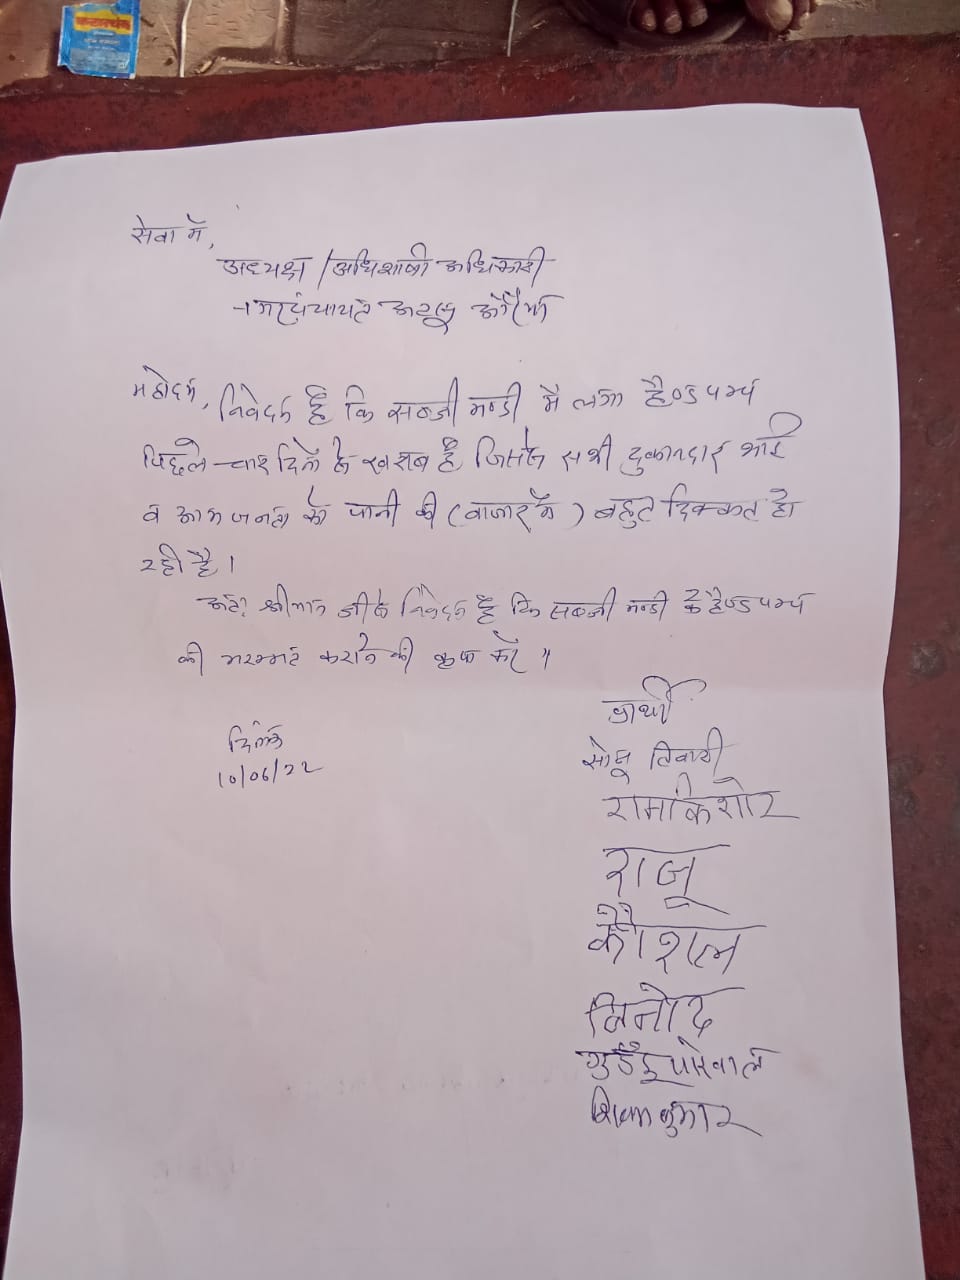 सेवा में,
अध्यक्ष / अधिशाषी अधिकारी
नगर पंचायत अटसू औरैया
महोदय, निवेदन है कि सब्जी मण्डी में लगा हैण्डपम्प
पिछले चार दिनों से खराब है जिससे सभी दुकानदार भाई
व आम जनता को पानी की (बाजार में) बहुत दिक्कत हो
रही है।
अतः श्रीमान जी से निवेदन है कि सब्जी मण्डी के हैण्डपम्प
की मरम्मत कराने की कृपा करें॥
प्रार्थी
दिनांक
10/06/22
सोनू तिवारी
रामकिशोर
राजू
कौशल
विनोद
गुड्डू पोरवाल
शिवम कुमार